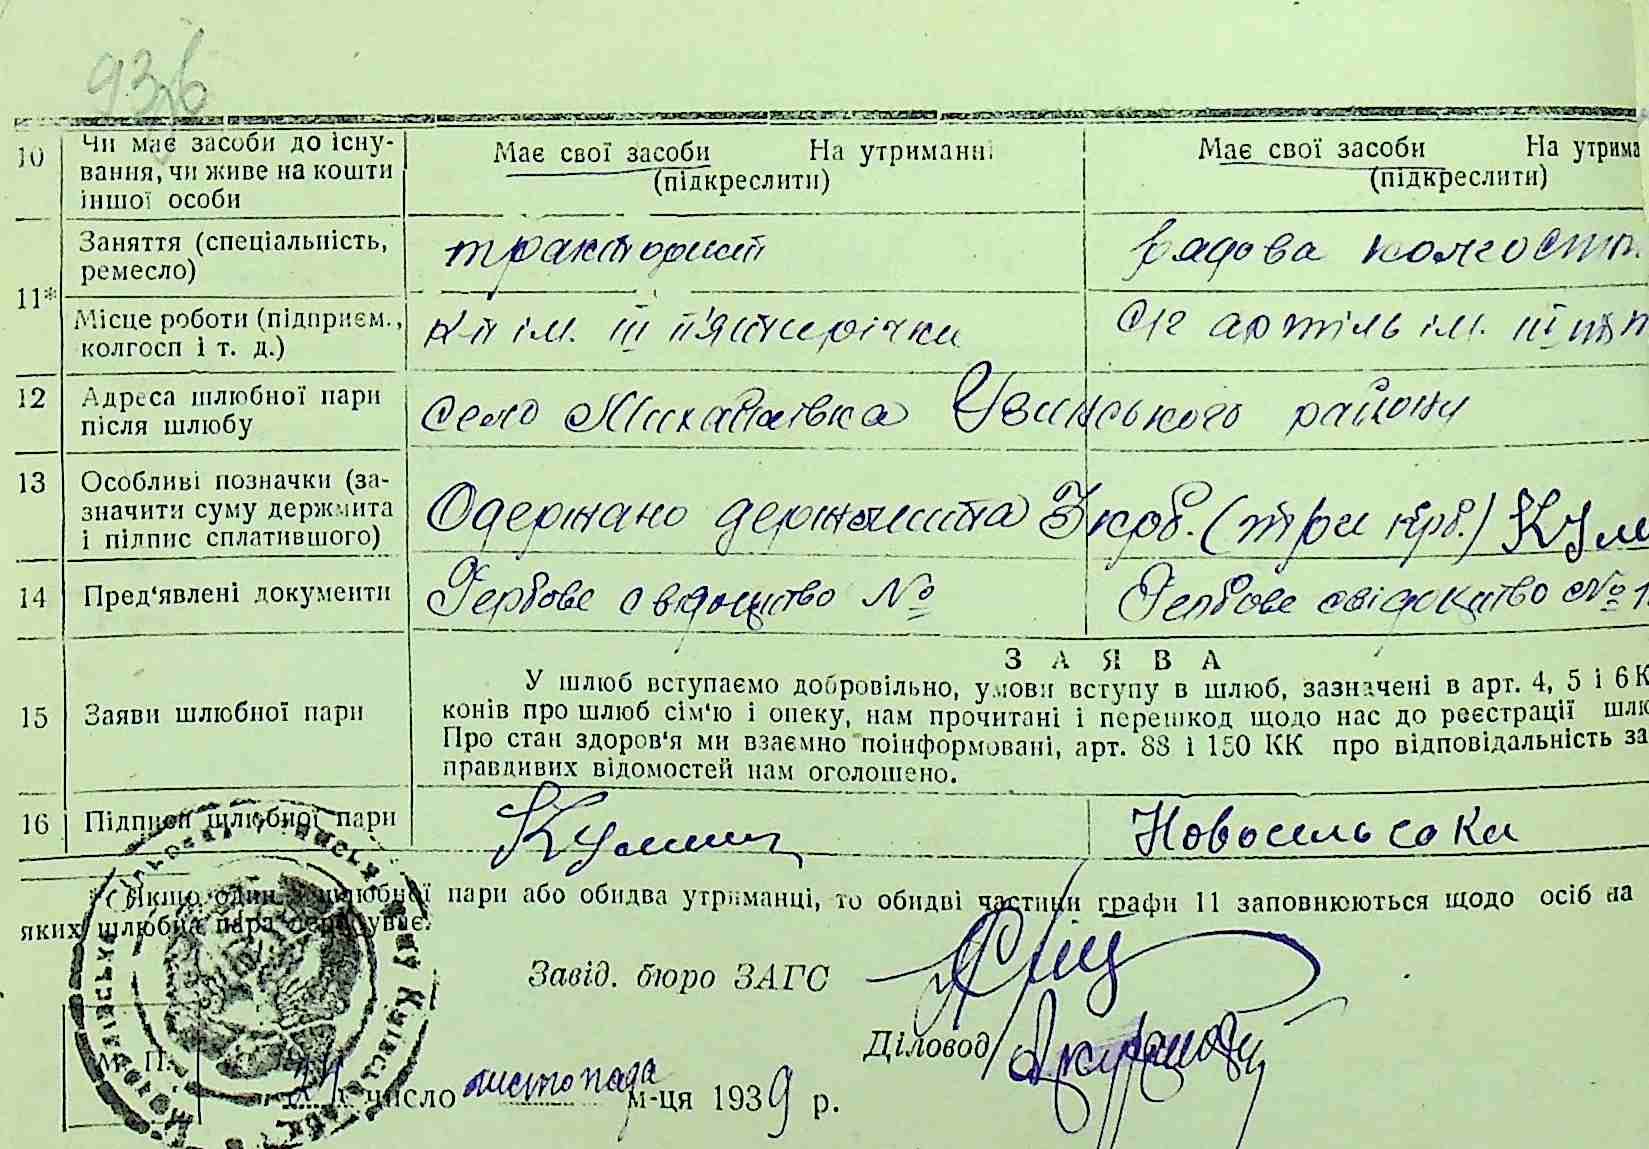 93/6
10 Чи має засоби до існу-
вання, чи живе на кошти
іншої особи
Має свої засоби На утриманні
(підкреслити)
Має свої засоби На утрима
(підкреслити)
11*
Заняття (спеціальність,
ремесло)
тракторист
рядова колгоспн
Місце роботи (підприєм.,
колгосп і т. д.)
к-п ім. ІІІ п'ятирічки
с/г артіль ім. ІІІ
12 Адреса шлюбної пари
після шлюбу
село Михайлівка району
13 Особливі позначки (за-
значити суму держмита
і підпис сплатившого)
Одержано держмита 3 крб. (три крб.)
14 Пред'явлені документи
Гербове свідоцтво №
Гербове свідоцтво №
З А Я В А
15 Заяви шлюбної пари
У шлюб вступаємо добровільно, умови вступу в шлюб, зазначені в арт. 4, 5 і 6 К
конів про шлюб сім'ю і опеку, нам прочитані і перешкод щодо нас до реєстрації шлю
Про стан здоров'я ми взаємно поінформовані, арт. 88 і 150 КК про відповідальність за
правдивих відомостей нам оголошено.
16 Підписи шлюбної пари
Новосельська
* Якщо один з шлюбної пари або обидва утриманці, то обидві частини графи 11 заповнюються щодо осіб на
яких шлюбна пара
Завід. бюро ЗАГС
Діловод
М. П.
число листопада м-ця 1939 р.